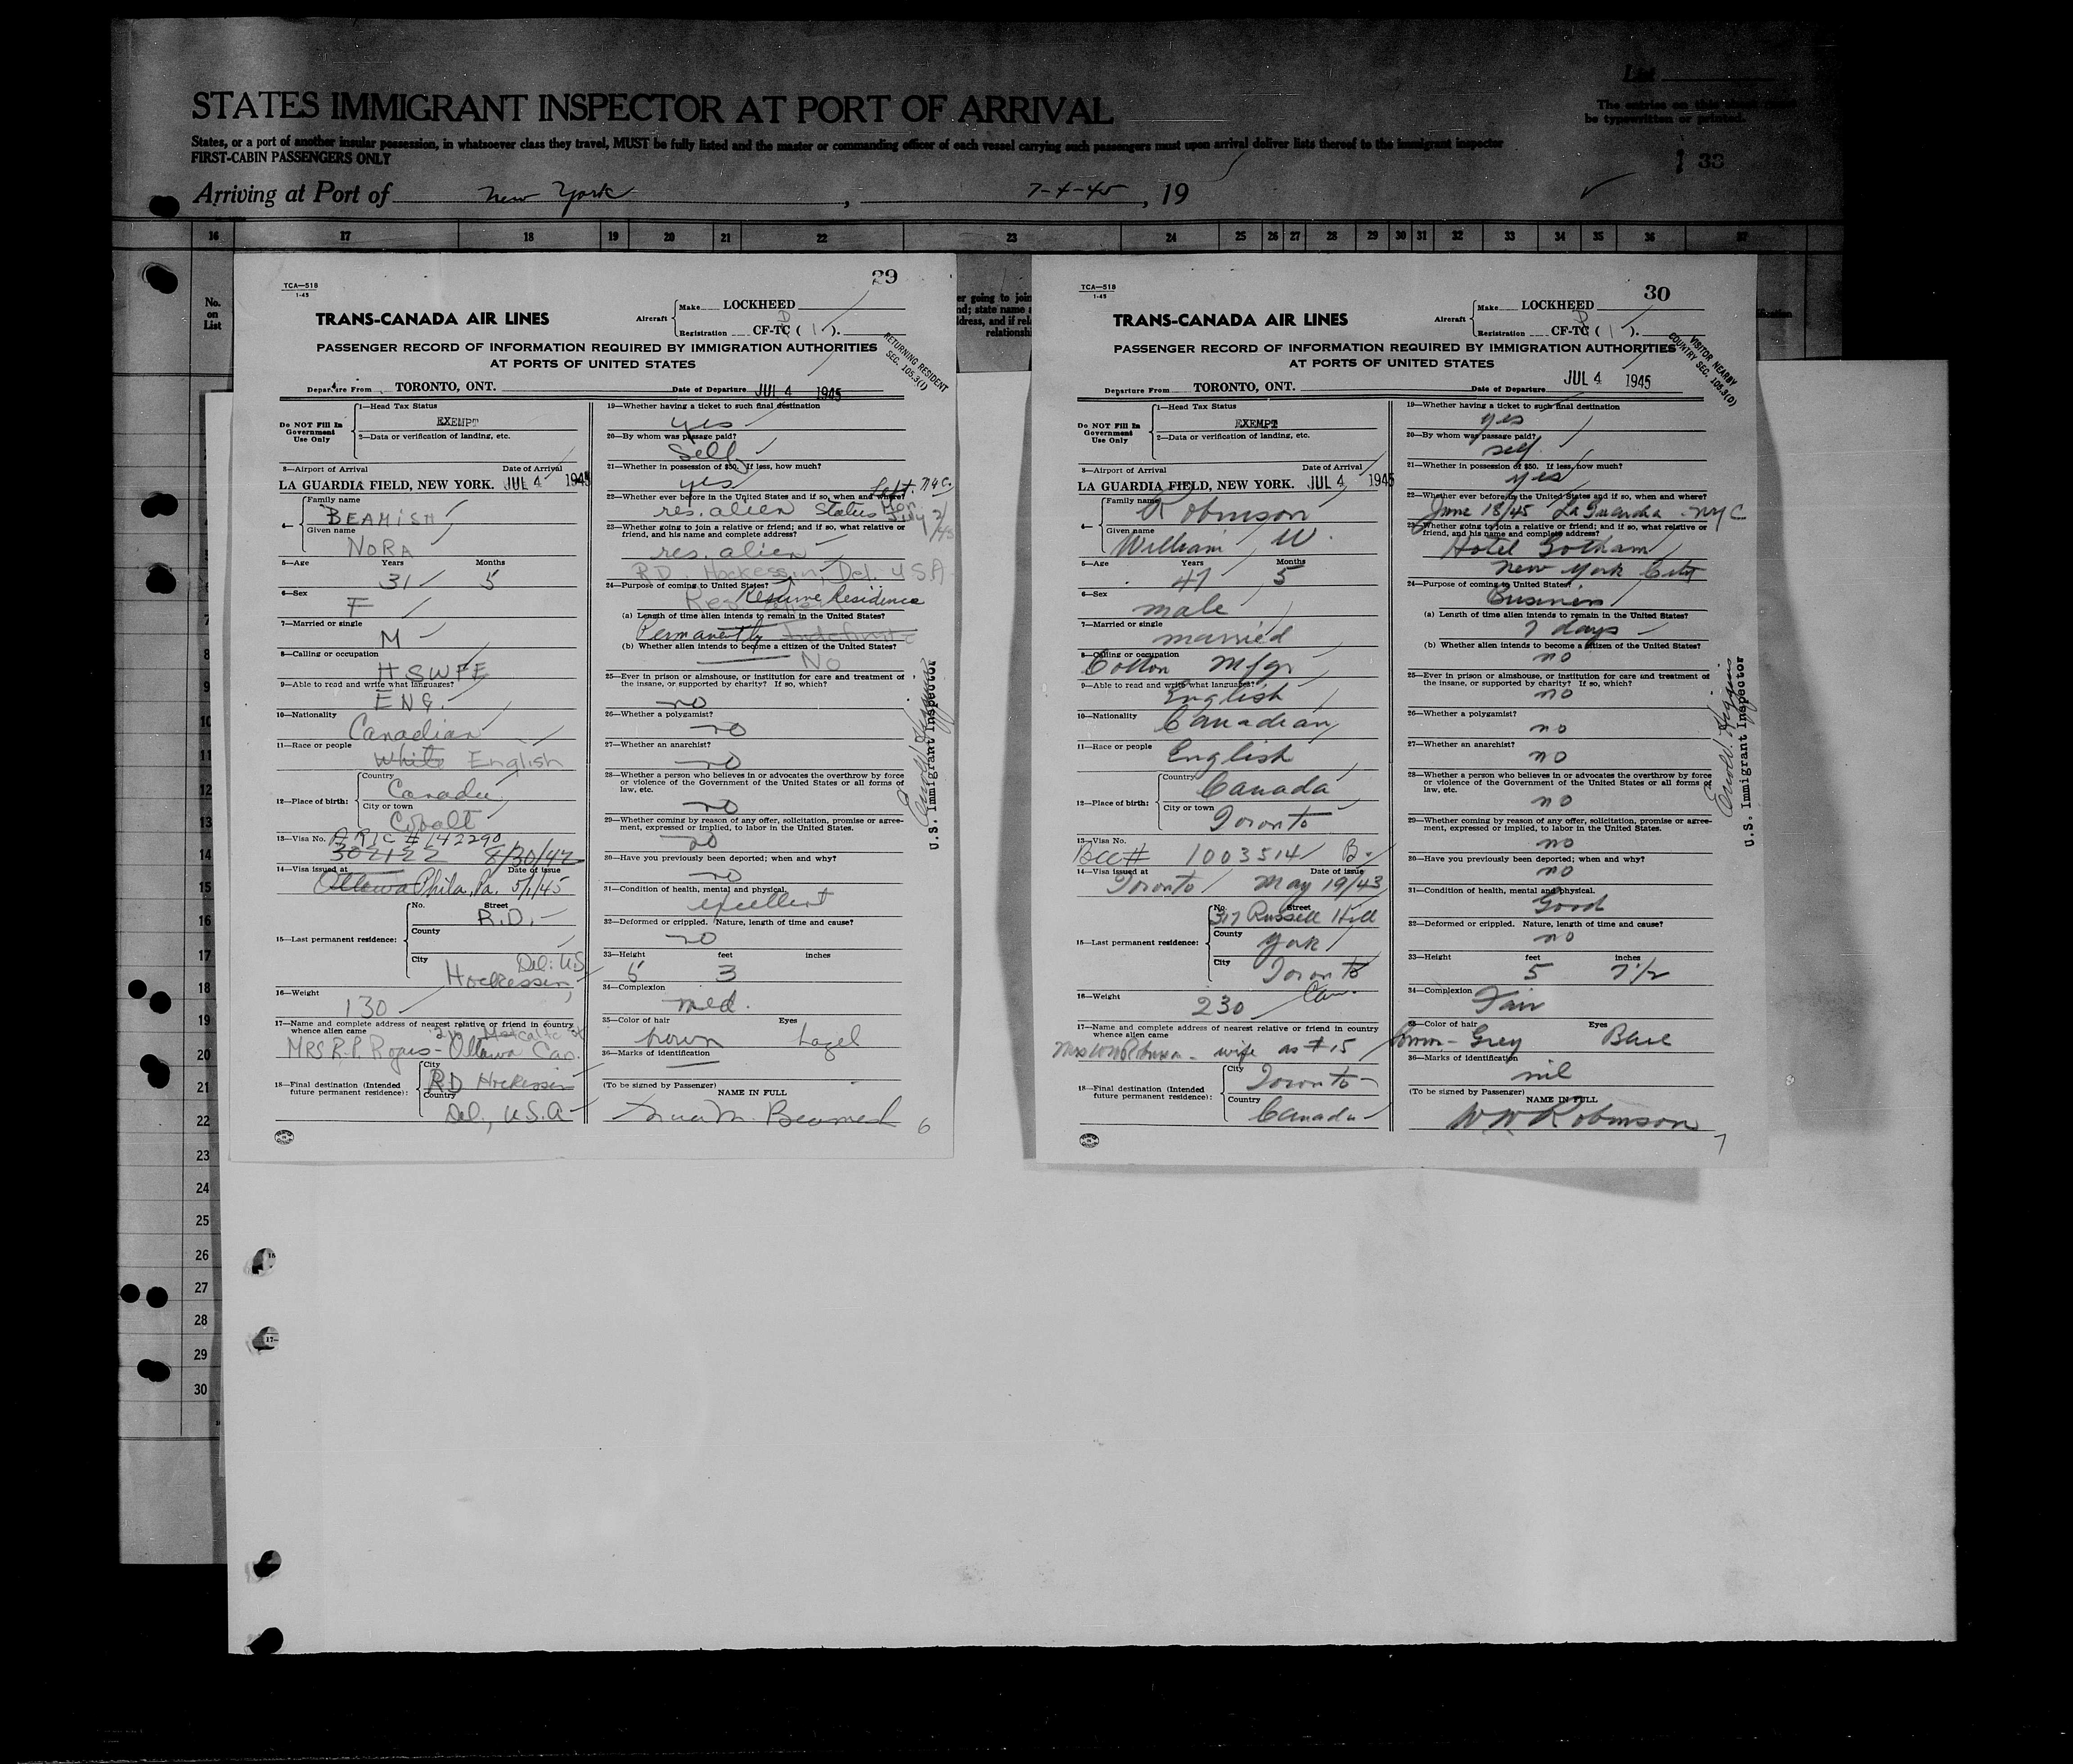 List
STATES IMMIGRANT INSPECTOR AT PORT OF ARRIVAL
The entries on this sheet must
be typewritten or printed.
States, or a port of another insular possession, in whatsoever class they travel, MUST be fully listed and the master or commanding officer of each vessel carrying such passengers must upon arrival deliver lists thereof to the immigrant inspector
FIRST-CABIN PASSENGERS ONLY
33
Arriving at Port of New York, 7-4-45, 19
16 17 18 19 20 21 22 23 24 25 26 27 28 29 30 31 32 33 34 35 36 37
No.
on
List
8
9
10
11
12
13
14
15
16
17
18
19
20
21
22
23
24
25
26
27
28
29
30
TCA—518
1-45
29
TRANS-CANADA AIR LINES
Aircraft
Make LOCKHEED
Registration CF-TC ( 1 ).
PASSENGER RECORD OF INFORMATION REQUIRED BY IMMIGRATION AUTHORITIES
AT PORTS OF UNITED STATES
RETURNING RESIDENT
SEC. 105.3(1)
Departure From TORONTO, ONT.
Date of Departure JUL 4 1945
Do NOT Fill In
Government
Use Only
1—Head Tax Status
EXEMPT
2—Data or verification of landing, etc.
3—Airport of Arrival Date of Arrival
LA GUARDIA FIELD, NEW YORK. JUL 4 1945
4—
Family name
BEAMISH
Given name
NORA
5—Age Years Months
31 5
6—Sex
F
7—Married or single
M
8—Calling or occupation
HSWFE
9—Able to read and write what languages?
ENG.
10—Nationality
Canadian
11—Race or people
White English
12—Place of birth:
Country
Canada
City or town
Cobalt
13—Visa No. ARIC # 142290
302122 8/30/42
14—Visa issued at Date of issue
Ottawa Phila, Pa. 5/1/45
15—Last permanent residence:
No. Street
R.D.
County
City
Del. U.S.
Hockessin,
16—Weight
130
17—Name and complete address of nearest relative or friend in country
whence alien came
Metcalfe St
MRS R.P. Rogers - Ottawa Can.
18—Final destination (Intended
future permanent residence):
City
RD Hockessin
Country
Del., U.S.A
19—Whether having a ticket to such final destination
yes
20—By whom was passage paid?
Self
21—Whether in possession of $50. If less, how much?
yes
22—Whether ever before in the United States and if so, when and where?
res. alien status
23—Whether going to join a relative or friend; and if so, what relative or
friend, and his name and complete address?
res. alien
RD. Hockessin, Del. USA
24—Purpose of coming to United States?
Resume Residence
(a) Length of time alien intends to remain in the United States?
Permanently Indefinite
(b) Whether alien intends to become a citizen of the United States?
No
25—Ever in prison or almshouse, or institution for care and treatment of
the insane, or supported by charity? If so, which?
no
26—Whether a polygamist?
no
27—Whether an anarchist?
no
28—Whether a person who believes in or advocates the overthrow by force
or violence of the Government of the United States or all forms of
law, etc.
no
29—Whether coming by reason of any offer, solicitation, promise or agree-
ment, expressed or implied, to labor in the United States.
no
30—Have you previously been deported; when and why?
no
31—Condition of health, mental and physical.
excellent
32—Deformed or crippled. Nature, length of time and cause?
no
33—Height feet inches
5 3
34—Complexion
med.
35—Color of hair Eyes
brown hazel
36—Marks of identification
(To be signed by Passenger)
NAME IN FULL
Nora M. Beamish
6
U.S. Immigrant Inspector
TCA—518
1-45
30
TRANS-CANADA AIR LINES
Aircraft
Make LOCKHEED
Registration CF-TC ( 1 ).
PASSENGER RECORD OF INFORMATION REQUIRED BY IMMIGRATION AUTHORITIES
AT PORTS OF UNITED STATES
VISITOR NEARBY
COUNTRY SEC. 105.3(D)
Departure From TORONTO, ONT.
Date of Departure JUL 4 1945
Do NOT Fill In
Government
Use Only
1—Head Tax Status
EXEMPT
2—Data or verification of landing, etc.
3—Airport of Arrival Date of Arrival
LA GUARDIA FIELD, NEW YORK. JUL 4 1945
4—
Family name
Robinson
Given name
William W.
5—Age Years Months
47 5
6—Sex
male
7—Married or single
married
8—Calling or occupation
Cotton Mfgr
9—Able to read and write what languages?
English
10—Nationality
Canadian
11—Race or people
English
12—Place of birth:
Country
Canada
City or town
Toronto
13—Visa No.
BCC# 1003514 B.
14—Visa issued at Date of issue
Toronto May 19/43
15—Last permanent residence:
No. Street
317 Russell Hill
County
York
City
Toronto
Can.
16—Weight
230
17—Name and complete address of nearest relative or friend in country
whence alien came
Mrs WW Robinson - wife as #15
18—Final destination (Intended
future permanent residence):
City
Toronto
Country
Canada
19—Whether having a ticket to such final destination
yes
20—By whom was passage paid?
self
21—Whether in possession of $50. If less, how much?
yes
22—Whether ever before in the United States and if so, when and where?
June 18/45 La Guardia - NYC
23—Whether going to join a relative or friend; and if so, what relative or
friend, and his name and complete address?
Hotel Gotham
New York City
24—Purpose of coming to United States?
Business
(a) Length of time alien intends to remain in the United States?
7 days
(b) Whether alien intends to become a citizen of the United States?
no
25—Ever in prison or almshouse, or institution for care and treatment of
the insane, or supported by charity? If so, which?
no
26—Whether a polygamist?
no
27—Whether an anarchist?
no
28—Whether a person who believes in or advocates the overthrow by force
or violence of the Government of the United States or all forms of
law, etc.
no
29—Whether coming by reason of any offer, solicitation, promise or agree-
ment, expressed or implied, to labor in the United States.
no
30—Have you previously been deported; when and why?
no
31—Condition of health, mental and physical.
Good
32—Deformed or crippled. Nature, length of time and cause?
no
33—Height feet inches
5 7 1/2
34—Complexion
Fair
35—Color of hair Eyes
Brown - Grey Blue
36—Marks of identification
nil
(To be signed by Passenger)
NAME IN FULL
WW Robinson
7
U.S. Immigrant Inspector